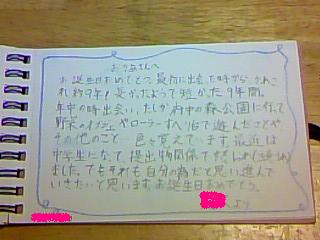 お母さんへ
お誕生日おめでとう。最初に出会た時から、かれこ
れ約9年！長かったようで短かった9年間。
年中の時出会い、たしか府中の森公園に行って
野菜のオブジェやローラーすべり台で遊んだことや
その他のこと、色々覚えています。最近は
中学生になって提出物関係で
ました。でもそれも自分の為だと思い進んで
いきたいと思います。お誕生日おめでとう。
より